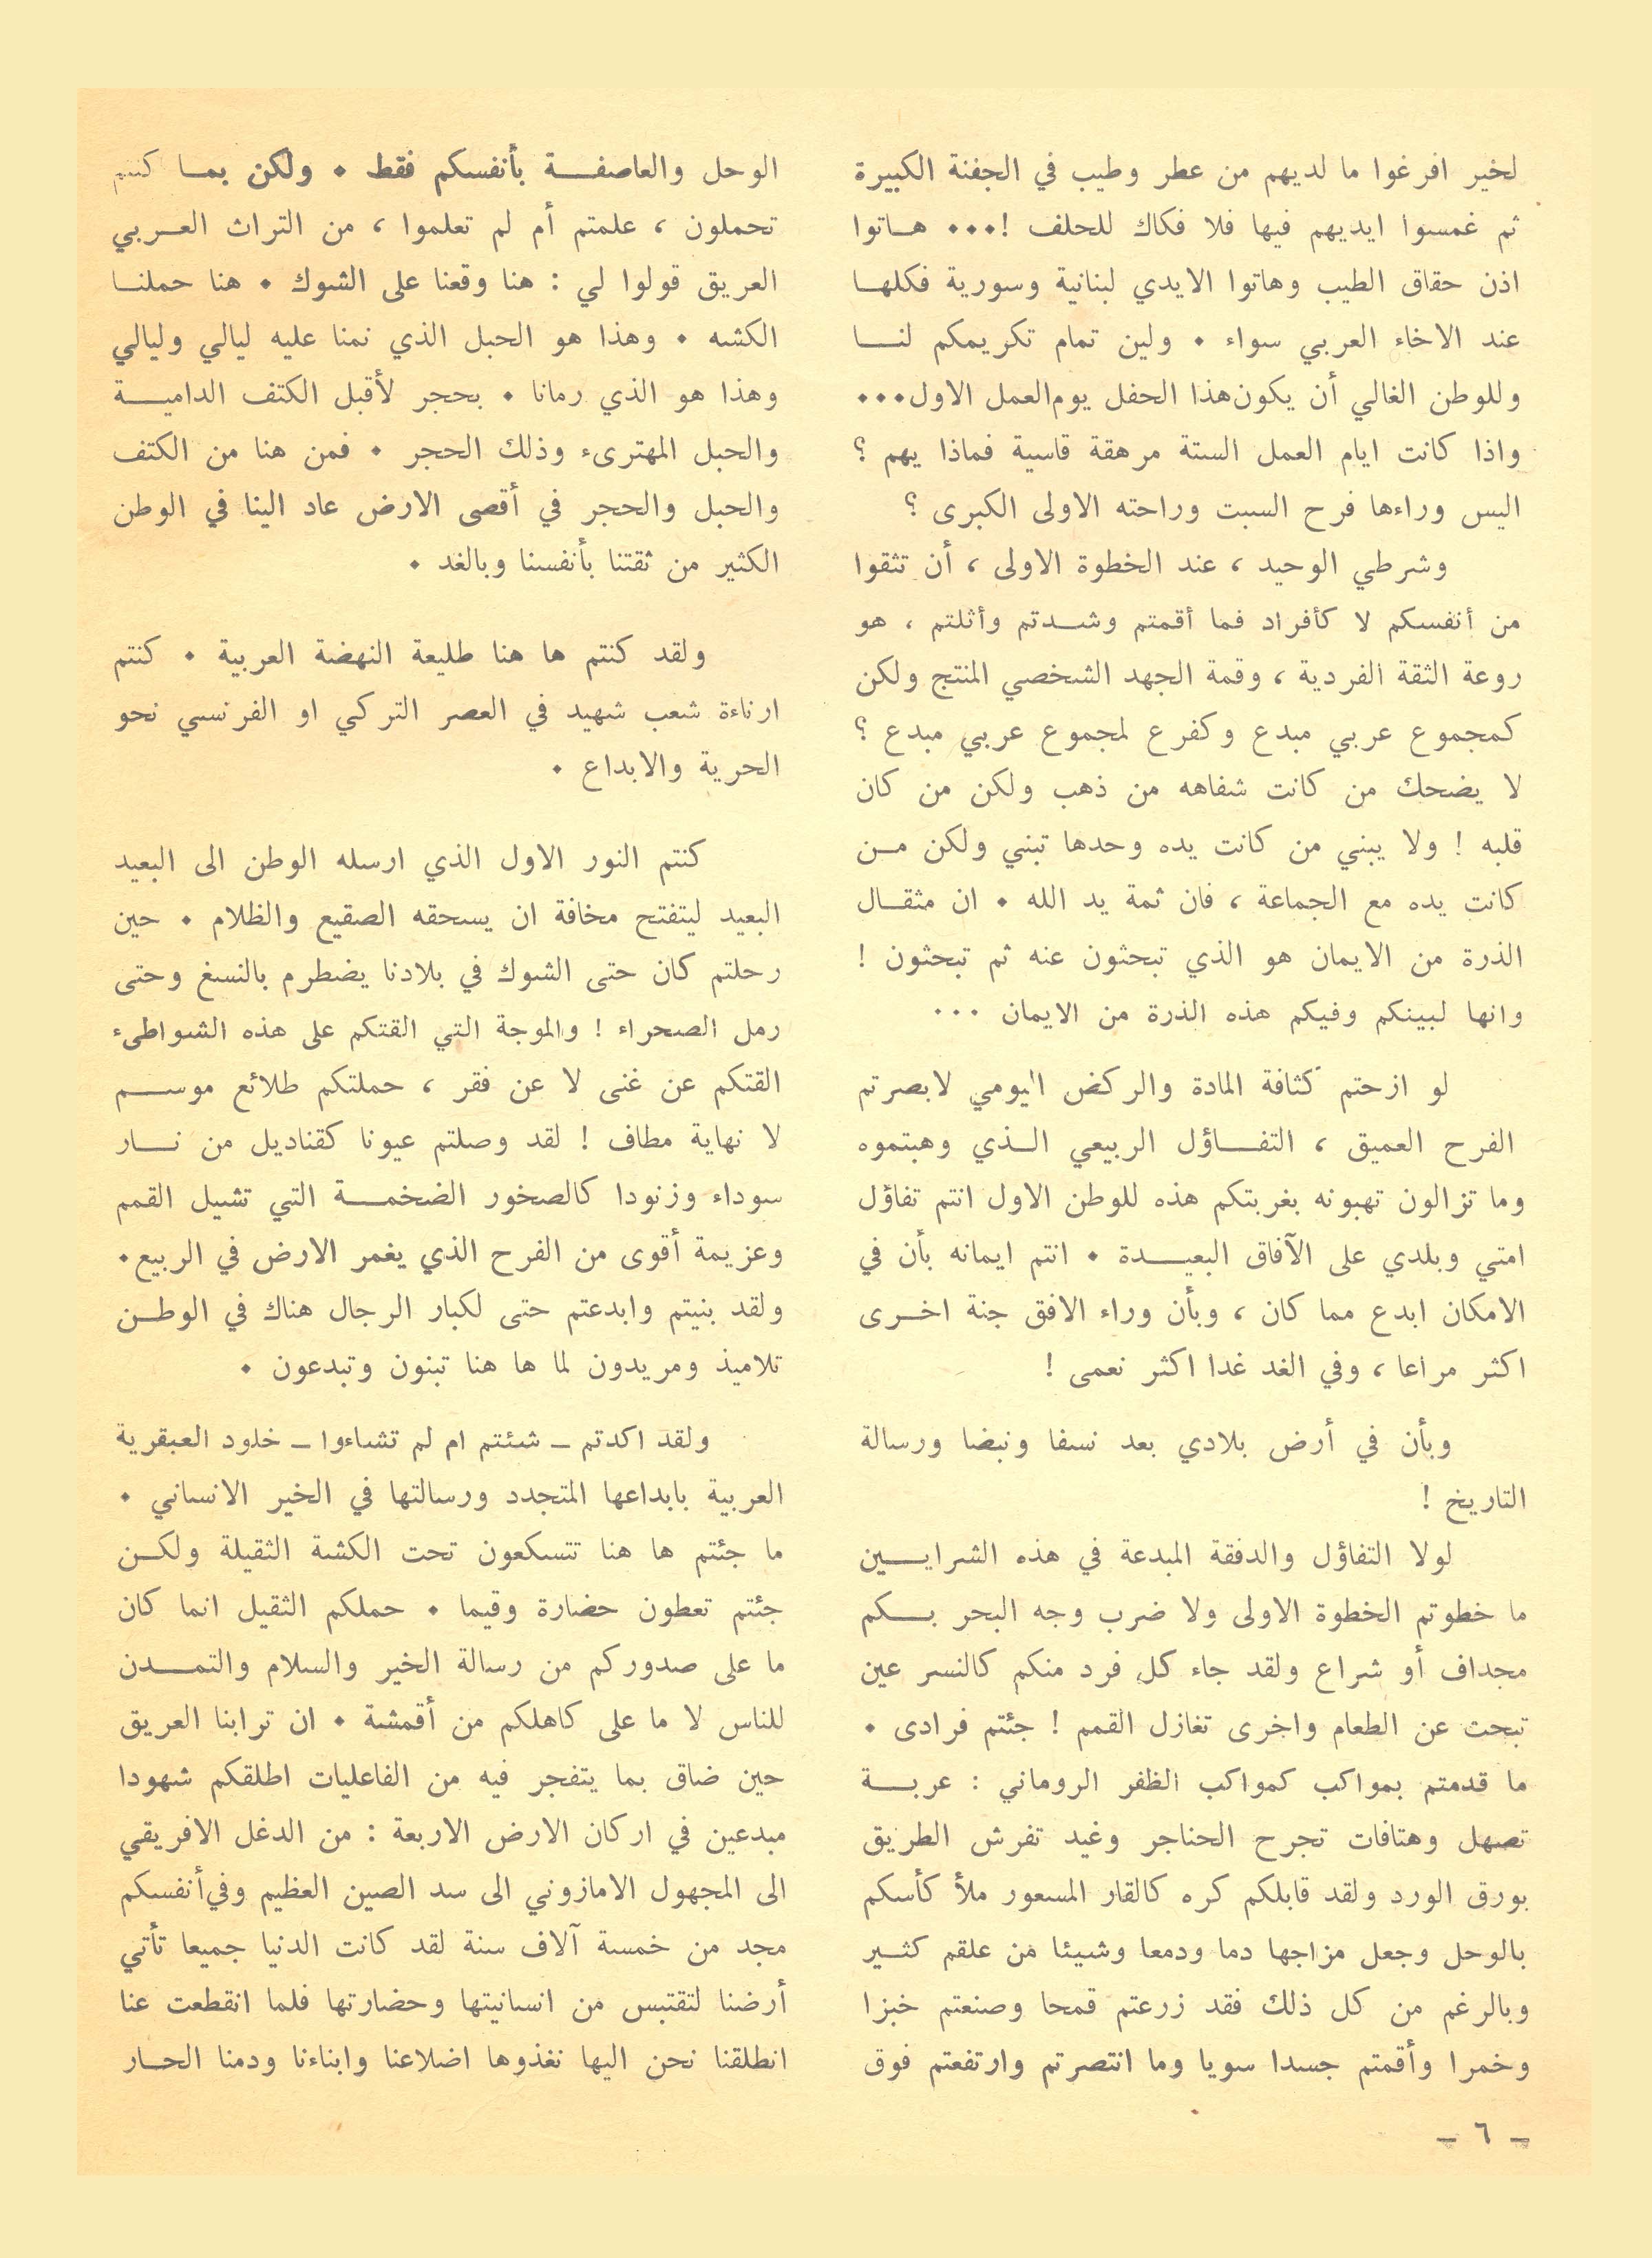 لخير افرغوا ما لديهم من عطر وطيب في الجفنة الكبيرة
ثم غمسوا ايديهم فيها فلا فكاك للحلف !... هاتوا
اذن حقاق الطيب وهاتوا الايدي لبنانية وسورية فكلها
عند الاخاء العربي سواء . ولين تمام تكريمكم لنا
وللوطن الغالي أن يكون هذا الحفل يوم العمل الاول...
واذا كانت ايام العمل الستة مرهقة قاسية فماذا يهم ؟
اليس وراءها فرح السبت وراحته الاولى الكبرى ؟
وشرطي الوحيد ، عند الخطوة الاولى ، أن تثقوا
من أنفسكم لا كأفراد فما أقمتم وشدتم وأثلتم ، هو
روعة الثقة الفردية ، وقمة الجهد الشخصي المنتج ولكن
كمجموع عربي مبدع وكفرع لمجموع عربي مبدع ؟
لا يضحك من كانت شفاهه من ذهب ولكن من كان
قلبه ! ولا يبني من كانت يده وحدها تبني ولكن من
كانت يده مع الجماعة ، فان ثمة يد الله . ان مثقال
الذرة من الايمان هو الذي تبحثون عنه ثم تبحثون !
وانها لبينكم وفيكم هذه الذرة من الايمان ...
لو ازحتم كثافة المادة والركض اليومي لابصرتم
الفرح العميق ، التفاؤل الربيعي الذي وهبتموه
وما تزالون تهبونه بغربتكم هذه للوطن الاول انتم تفاؤل
امتي وبلدي على الآفاق البعيدة . انتم ايمانه بأن في
الامكان ابدع مما كان ، وبأن وراء الافق جنة اخرى
اكثر مراعا ، وفي الغد غدا اكثر نعمى !
وبأن في أرض بلادي بعد نسفا ونبضا ورسالة
التاريخ !
لولا التفاؤل والدفقة المبدعة في هذه الشرايين
ما خطوتم الخطوة الاولى ولا ضرب وجه البحر بكم
مجداف أو شراع ولقد جاء كل فرد منكم كالنسر عين
تبحث عن الطعام واخرى تغازل القمم ! جئتم فرادى .
ما قدمتم بمواكب كمواكب الظفر الروماني : عربة
تصهل وهتافات تجرح الحناجر وغيد تفرش الطريق
بورق الورد ولقد قابلكم كره كالقار المسعور ملأ كأسكم
بالوحل وجعل مزاجها دما ودمعا وشيئا من علقم كثير
وبالرغم من كل ذلك فقد زرعتم قمحا وصنعتم خبزا
وخمرا وأقمتم جسدا سويا وما انتصرتم وارتفعتم فوق
الوحل والعاصفة بأنفسكم فقط . ولكن بما كنتم
تحملون ، علمتم أم لم تعلموا ، من التراث العربي
العريق قولوا لي : هنا وقعنا على الشوك . هنا حملنا
الكشه . وهذا هو الحبل الذي نمنا عليه ليالي وليالي
وهذا هو الذي رمانا . بحجر لأقبل الكتف الدامية
والحبل المهترىء وذلك الحجر . فمن هنا من الكتف
والحبل والحجر في أقصى الارض عاد الينا في الوطن
الكثير من ثقتنا بأنفسنا وبالغد .
ولقد كنتم ها هنا طليعة النهضة العربية . كنتم
ارناءة شعب شهيد في العصر التركي او الفرنسي نحو
الحرية والابداع .
كنتم النور الاول الذي ارسله الوطن الى البعيد
البعيد ليتفتح مخافة ان يسحقه الصقيع والظلام . حين
رحلتم كان حتى الشوك في بلادنا يضطرم بالنسغ وحتى
رمل الصحراء ! والموجة التي القتكم على هذه الشواطىء
القتكم عن غنى لا عن فقر ، حملتكم طلائع موسم
لا نهاية مطاف ! لقد وصلتم عيونا كقناديل من نار
سوداء وزنودا كالصخور الضخمة التي تشيل القمم
وعزيمة أقوى من الفرح الذي يغمر الارض في الربيع.
ولقد بنيتم وابدعتم حتى لكبار الرجال هناك في الوطن
تلاميذ ومريدون لما ها هنا تبنون وتبدعون .
ولقد اكدتم – شئتم ام لم تشاءوا – خلود العبقرية
العربية بابداعها المتجدد ورسالتها في الخير الانساني .
ما جئتم ها هنا تتسكعون تحت الكشة الثقيلة ولكن
جئتم تعطون حضارة وقيما . حملكم الثقيل انما كان
ما على صدوركم من رسالة الخير والسلام والتمدن
للناس لا ما على كاهلكم من أقمشة . ان ترابنا العريق
حين ضاق بما يتفجر فيه من الفاعليات اطلقكم شهودا
مبدعين في اركان الارض الاربعة : من الدغل الافريقي
الى المجهول الامازوني الى سد الصين العظيم وفي أنفسكم
مجد من خمسة آلاف سنة لقد كانت الدنيا جميعا تأتي
أرضنا لتقتبس من انسانيتها وحضارتها فلما انقطعت عنا
انطلقنا نحن اليها نغذوها اضلاعنا وابناءنا ودمنا الحار
– ٦ –